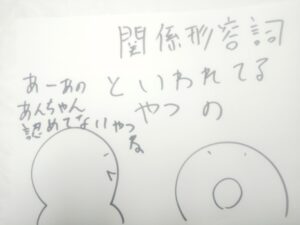 関係形容詞
あーあの といわれてる
あんちゃん やつの
認めてないやつ
る